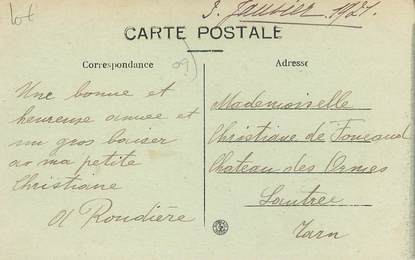 lot
3. Janvier 1921.
CARTE POSTALE
Correspondance
Adresse
Une bonne et
heureuse année et
un gros baiser
à ma petite
Christiane
A Roudière
Mademoiselle
Christiane de Foucaud
Chateau des Ormes
Lautrec
Tarn